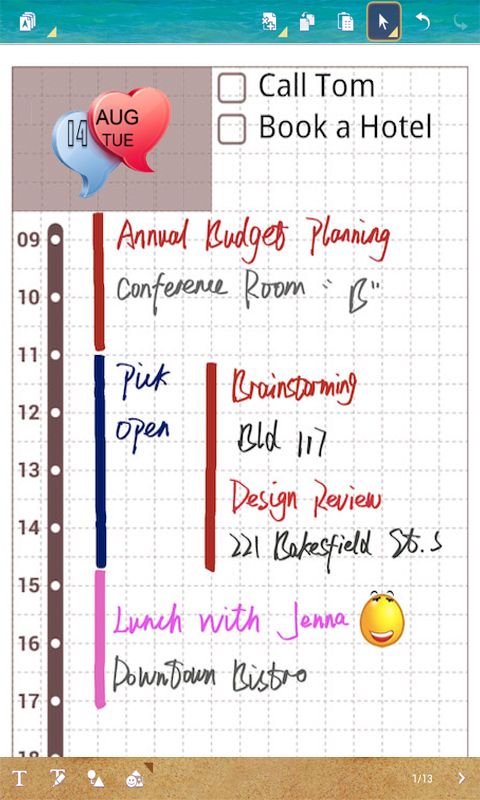 14 AUG
TUE
Call Tom
Book a Hotel
09
Annual Budget Planning
10
Conference Room "B"
11
Pick
Brainstorming
12
Open
Bld 117
13
Design Review
14
221 Bakesfield St. S
15
Lunch with Jenna
16
Downtown Bistro
17
18
T
1/13